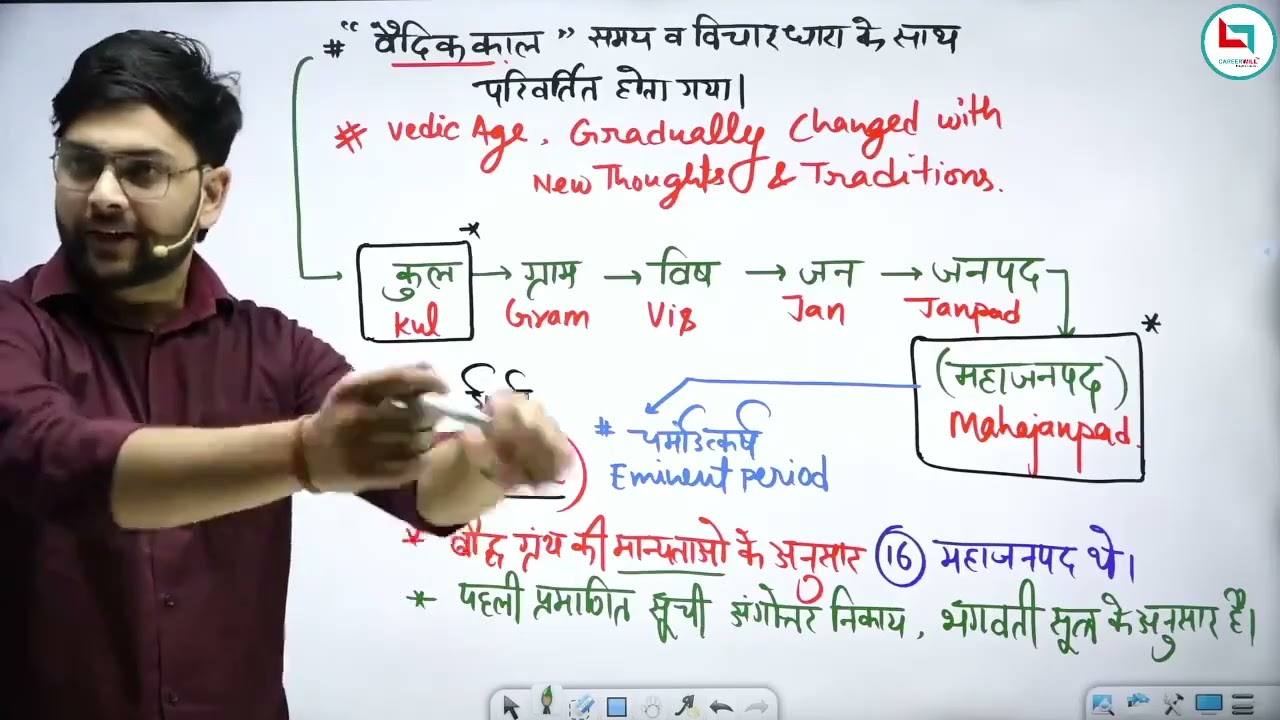 # “वैदिक काल” समय व विचारधारा के साथ
परिवर्तित होता गया।
# Vedic Age, Gradually Changed with
New Thoughts & Traditions.
कुल → ग्राम → विष → जन → जनपद
Kul Gram Vis Jan Janpad
(महाजनपद)
Mahajanpad.
# चर्मोउत्कर्ष
Eminent period
* बौद्ध ग्रंथ की मान्यताओ के अनुसार 16 महाजनपद थे।
* पहली प्रमाणित सूची अंगोत्तर निकाय, भगवती सूत्र के अनुसार है।
CAREERWILL